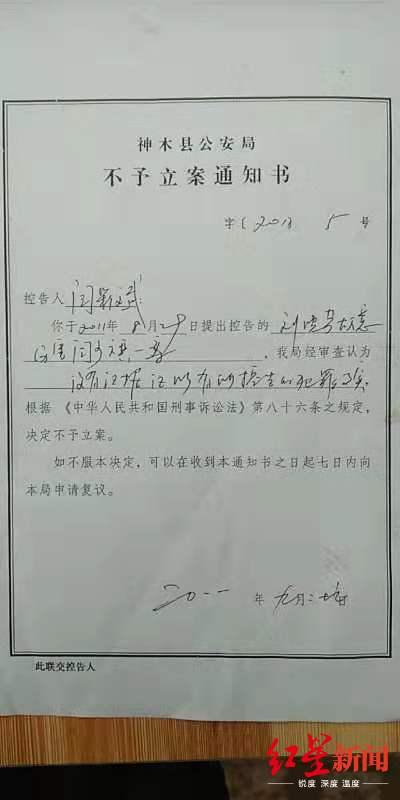 神木县公安局
不予立案通知书
字〔201 5 号
控告人
你于2011年8月29日提出控告的
一案,我局经审查认为
没有证据证明有所控告的犯罪事实
根据《中华人民共和国刑事诉讼法》第八十六条之规定,
决定不予立案。
如不服本决定,可以在收到本通知书之日起七日内向
本局申请复议。
二0一一年九月二
此联交控告人
红星新闻
锐度 深度 温度